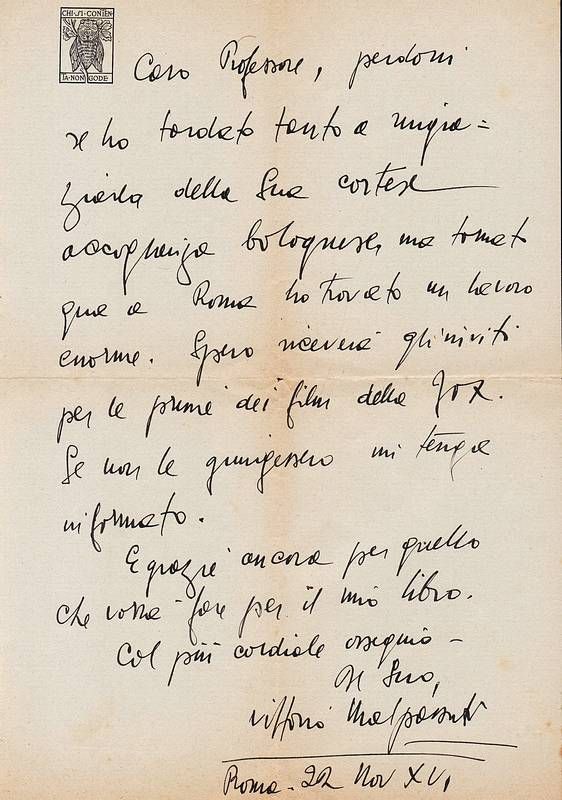 CHI·SI·CONTEN-
TA·NON GODE
Caro Professore, perdoni
se ho tardato tanto a ringra=
ziarla della Sua cortese
accoglienza bolognese, ma tornato
qua a Roma ho trovato un lavoro
enorme. Spero riceverà gli inviti
per le prime dei film della Fox.
Se non le giungessero mi tenga
informato.
E grazie ancora per quello
che vorrà fare per il mio libro.
Col più cordiale ossequio -
Il Suo,
Vittorio Malpassuti
Roma - 22 Nov XVI